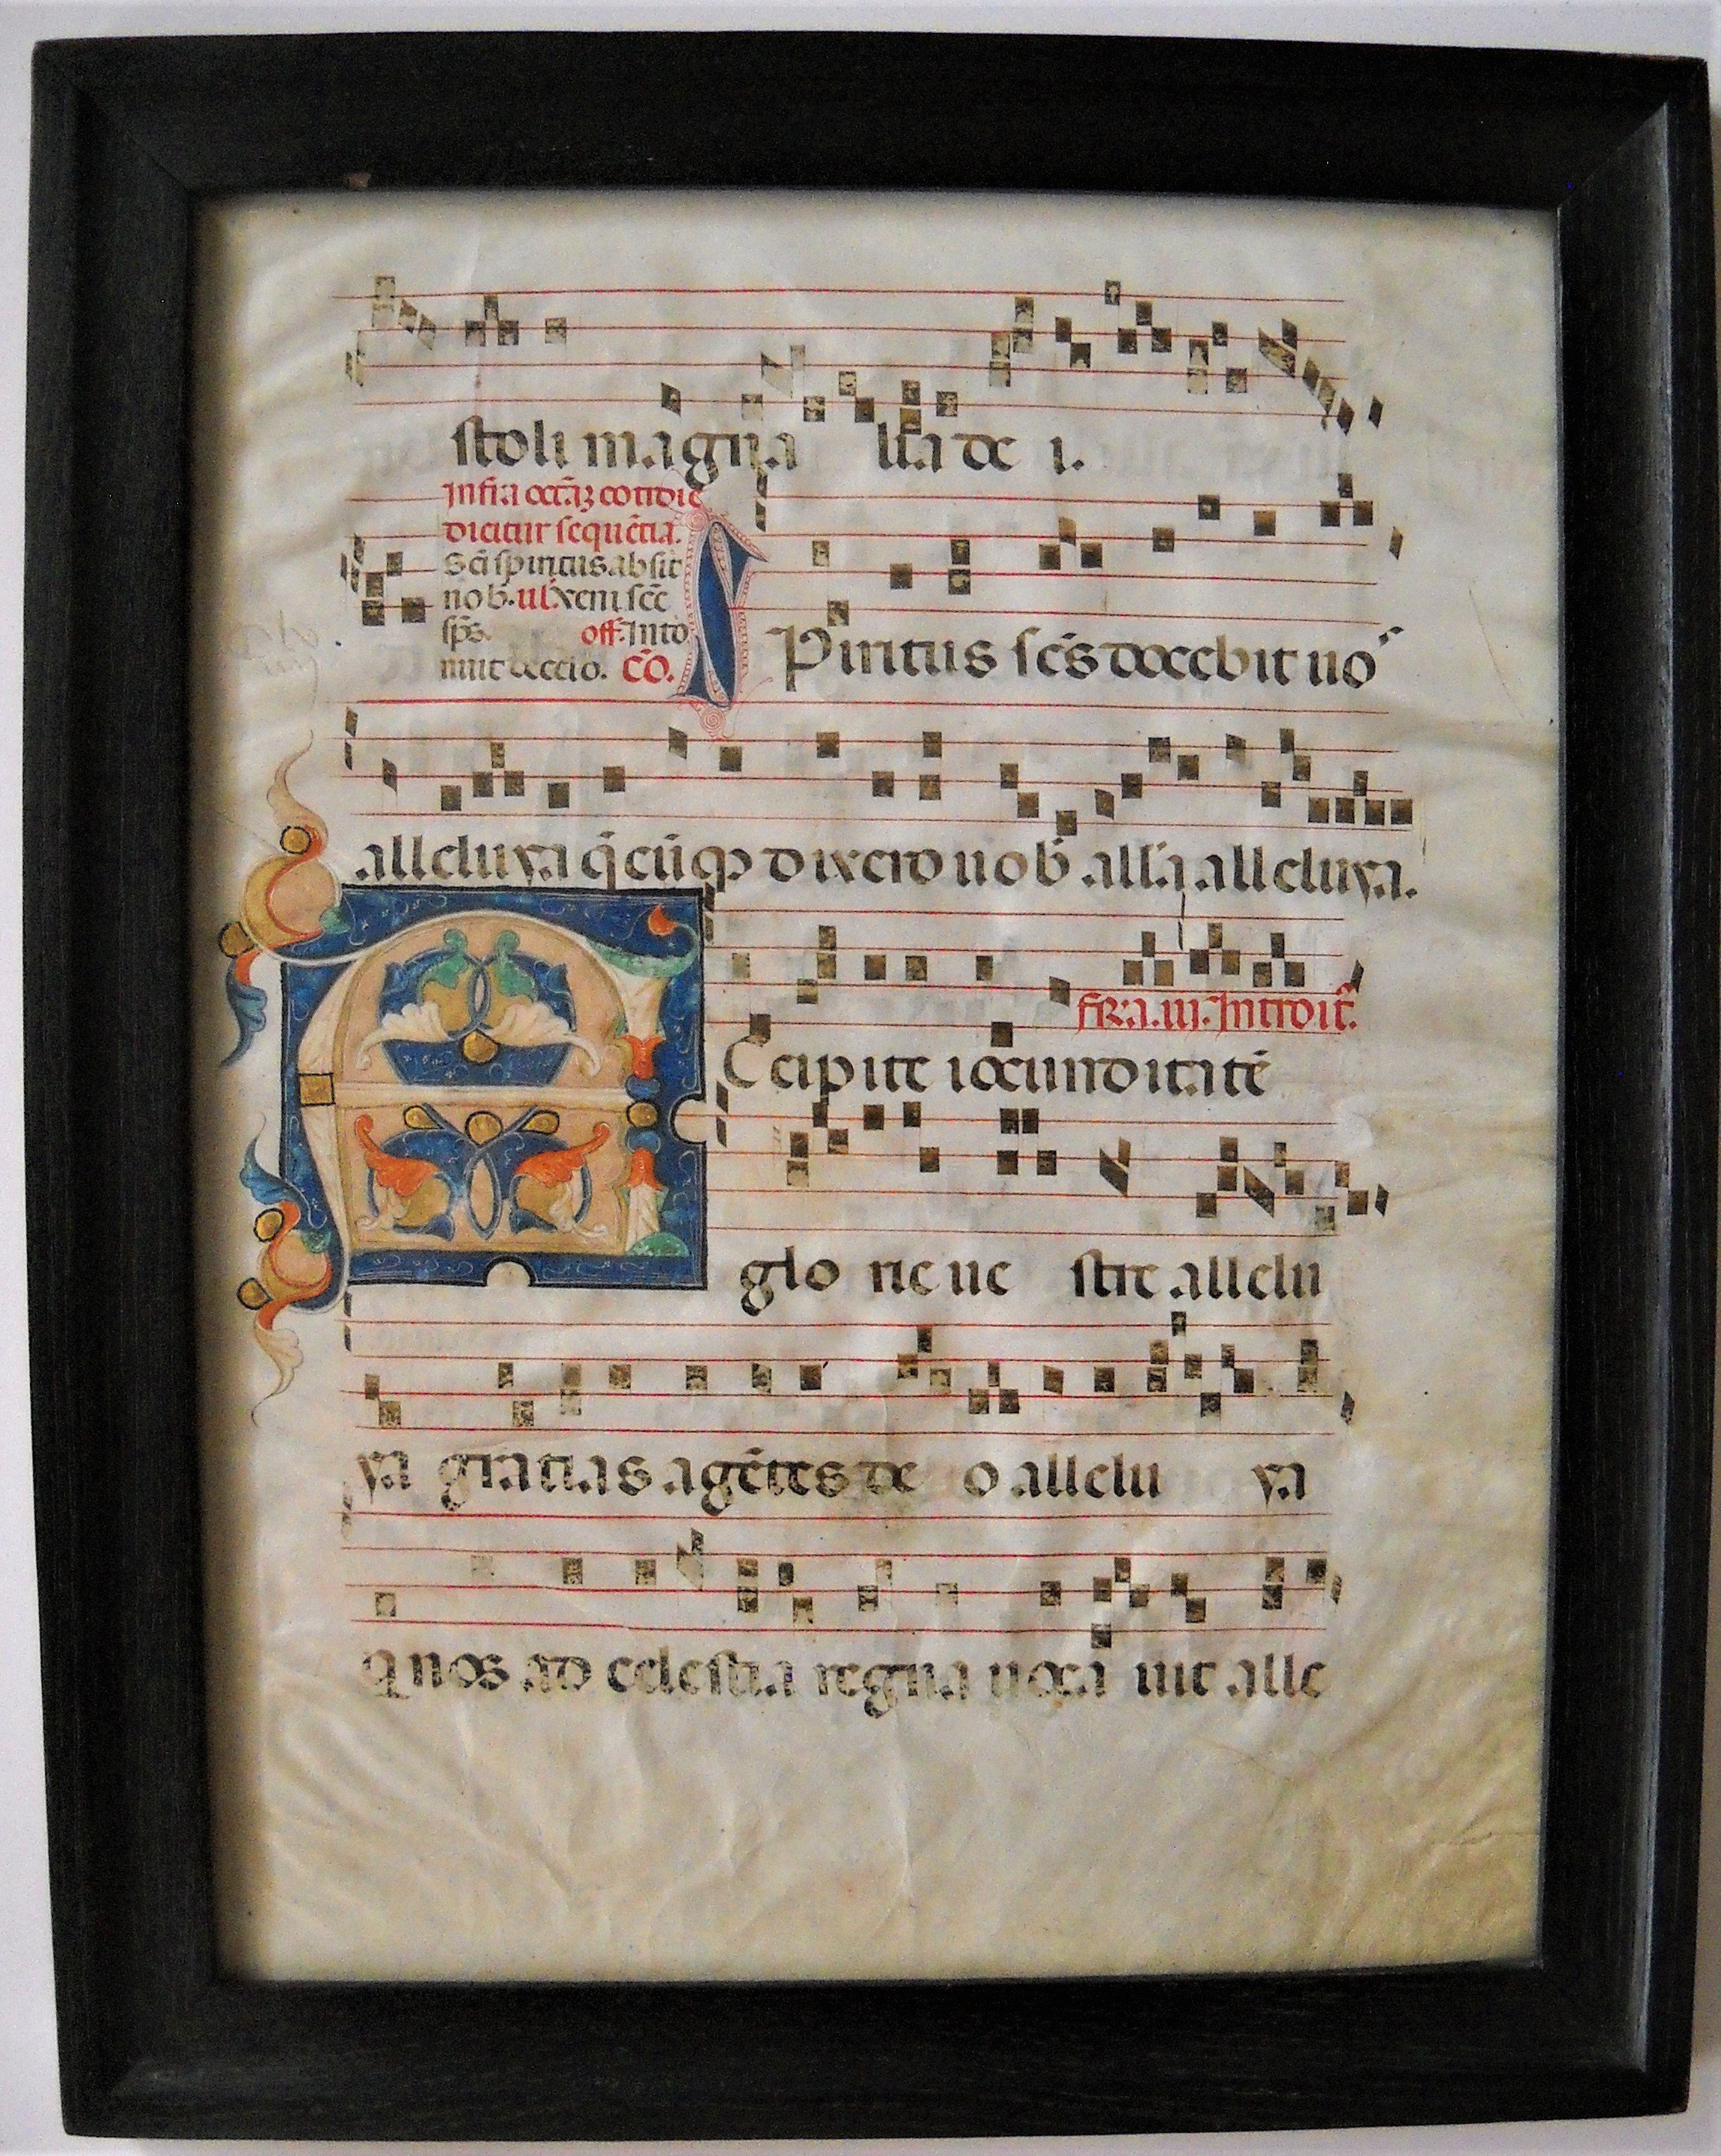 stoli magna lia de i.
Infra octaꝫ cotidie
dicitur sequētia.
Sc̄i spiritus absit
nob. ul. Veni sc̄e
sp̄s. off. Into
nuit de celo. CŌ.
SPiritus sc̄s docebit uo
alleluya q̄cūqꝫ dixero uob̄ all'a alleluya.
fer̄a. iij. Introit̄.
ACcipite iocunditatē
glo rie ue stre allelu
ya gratias agētes de o allelu ya
q uos ad celestia regna uoca uit alle